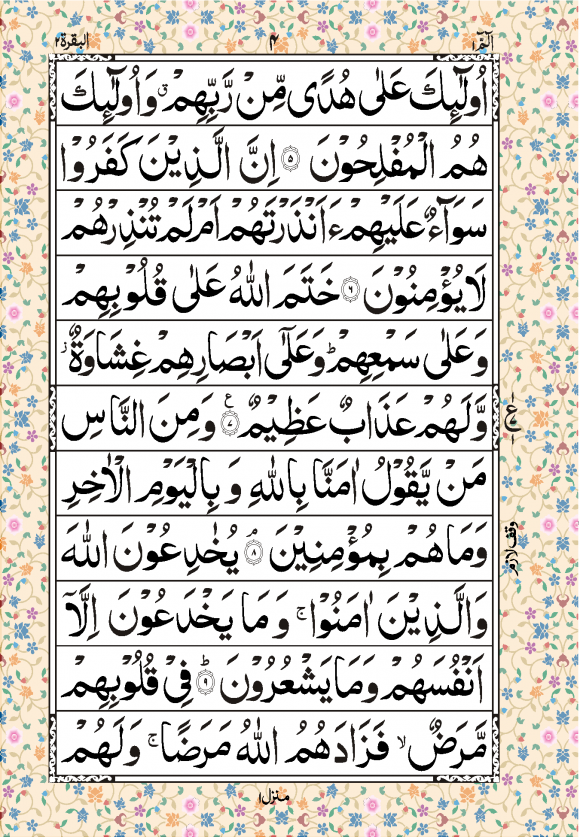 الٓمّٓ ١ ٤ البقرة ٢
اُولٰٓئِكَ عَلٰى هُدًى مِّنْ رَّبِّهِمْ ۗ وَاُولٰٓئِكَ
هُمُ الْمُفْلِحُوْنَ ۝٥ اِنَّ الَّذِيْنَ كَفَرُوْا
سَوَآءٌ عَلَيْهِمْ ءَاَنْذَرْتَهُمْ اَمْ لَمْ تُنْذِرْهُمْ
لَا يُؤْمِنُوْنَ ۝٦ خَتَمَ اللّٰهُ عَلٰى قُلُوْبِهِمْ
وَعَلٰى سَمْعِهِمْ ؕ وَعَلٰٓى اَبْصَارِهِمْ غِشَاوَةٌ ز
وَّلَهُمْ عَذَابٌ عَظِيْمٌ ۝٧ ع وَمِنَ النَّاسِ
مَنْ يَّقُوْلُ اٰمَنَّا بِاللّٰهِ وَ بِالْيَوْمِ الْاٰخِرِ
وَمَا هُمْ بِمُؤْمِنِيْنَ ۝٨ۘ يُخٰدِعُوْنَ اللّٰهَ
وَالَّذِيْنَ اٰمَنُوْا ۚ وَ مَا يَخْدَعُوْنَ اِلَّآ
اَنْفُسَهُمْ وَمَا يَشْعُرُوْنَ ۝٩ؕ فِيْ قُلُوْبِهِمْ
مَّرَضٌ ۙ فَزَادَهُمُ اللّٰهُ مَرَضًا ۚ وَلَهُمْ
ع
وقف لازم
منزل ١